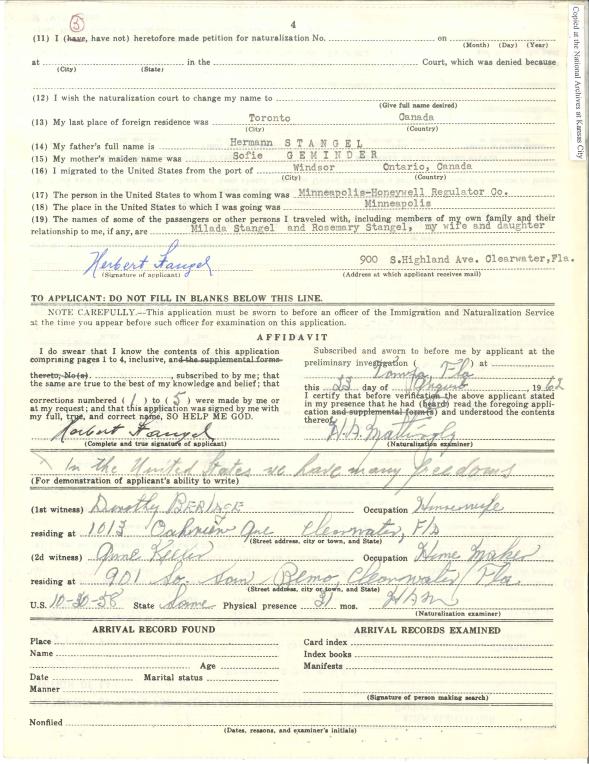 3
4
(11) I (have, have not) heretofore made petition for naturalization No. on
(Month) (Day) (Year)
at in the Court, which was denied because
(City) (State)
(12) I wish the naturalization court to change my name to
(Give full name desired)
(13) My last place of foreign residence was Toronto Canada
(City) (Country)
(14) My father's full name is Hermann STANGEL
(15) My mother's maiden name was Sofie GEMINDER
(16) I migrated to the United States from the port of Windsor Ontario, Canada
(City) (Country)
(17) The person in the United States to whom I was coming was Minneapolis-Honeywell Regulator Co.
(18) The place in the United States to which I was going was Minneapolis
(19) The names of some of the passengers or other persons I traveled with, including members of my own family and their
relationship to me, if any, are Milada Stangel and Rosemary Stangel, my wife and daughter
Herbert Stangel 900 S.Highland Ave. Clearwater, Fla.
(Signature of applicant) (Address at which applicant receives mail)
TO APPLICANT: DO NOT FILL IN BLANKS BELOW THIS LINE.
NOTE CAREFULLY.—This application must be sworn to before an officer of the Immigration and Naturalization Service
at the time you appear before such officer for examination on this application.
AFFIDAVIT
I do swear that I know the contents of this application
comprising pages 1 to 4, inclusive, and the supplemental forms
thereto, No(s). , subscribed to by me; that
the same are true to the best of my knowledge and belief; that
corrections numbered (1) to (5) were made by me or
at my request; and that this application was signed by me with
my full, true, and correct name, SO HELP ME GOD.
Herbert Stangel
(Complete and true signature of applicant)
Subscribed and sworn to before me by applicant at the
preliminary investigation ( ) at
Tampa, Fla
this 23 day of August, 1962
I certify that before verification the above applicant stated
in my presence that he had (heard) read the foregoing appli-
cation and supplemental form(s) and understood the contents
thereof.
Mattingly
(Naturalization examiner)
In the United States we have many freedoms
(For demonstration of applicant's ability to write)
(1st witness) Dorothy Occupation Housewife
residing at 1013 Oakview Ave Clearwater, Fla
(Street address, city or town, and State)
(2d witness) Anne Keller Occupation Home Maker
residing at 901 So. San Remo, Clearwater, Fla.
(Street address, city or town, and State)
U.S. 10-30-58 State Same Physical presence 31 mos.
(Naturalization examiner)
ARRIVAL RECORD FOUND
Place
Name
Age
Date Marital status
Manner
ARRIVAL RECORDS EXAMINED
Card index
Index books
Manifests
(Signature of person making search)
Nonfiled
(Dates, reasons, and examiner's initials)
Copied at the National Archives at Kansas City